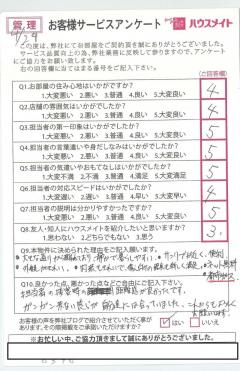 管理 お客様サービスアンケート ハウスメイト
7/29
この度は、弊社にてお部屋をご契約頂き誠にありがとうございました。
サービス品質向上の為、弊社業務に反映して参りますので、アンケート
にご協力をお願い致します。
右の回答欄に当てはまる番号をご記入下さい。
(ご回答欄)
Q1.お部屋の住み心地はいかがですか?
1.大変悪い 2.悪い 3.普通 4.良い 5.大変良い
4
Q2.店舗の雰囲気はいかがでしたか?
1.大変悪い 2.悪い 3.普通 4.良い 5.大変良い
4
Q3.担当者の第一印象はいかがでしたか?
1.大変悪い 2.悪い 3.普通 4.良い 5.大変良い
5
Q4.担当者の言葉遣いや身だしなみはいかがでしたか?
1.大変悪い 2.悪い 3.普通 4.良い 5.大変良い
5
Q5.担当者の気遣いやおもてなしはいかがでしたか?
1.大変不満 2.不満 3.普通 4.満足 5.大変満足
5
Q6.担当者の対応スピードはいかがでしたか?
1.大変遅い 2.遅い 3.普通 4.早い 5.大変早い
4
Q7.担当者の説明は分かりやすかったですか?
1.大変悪い 2.悪い 3.普通 4.良い 5.大変良い
5
Q8.友人・知人にハウスメイトを紹介したいと思いますか?
1.思わない 2.どちらでもない 3.思う
3
Q9.本物件に決められた理由をご記入願います。
Q10.良かった点、悪かった点などご自由にご記入下さい。
担当者の接客時の距離感が良かったです。
ガンガン来ない感じが自分には合っていました。
お客様の声を弊社ブログで紹介させていただく事が
あります。その際掲載をご承諾いただけますか?
はい いいえ
※お忙しい中、ご協力頂きまして誠にありがとうございました。